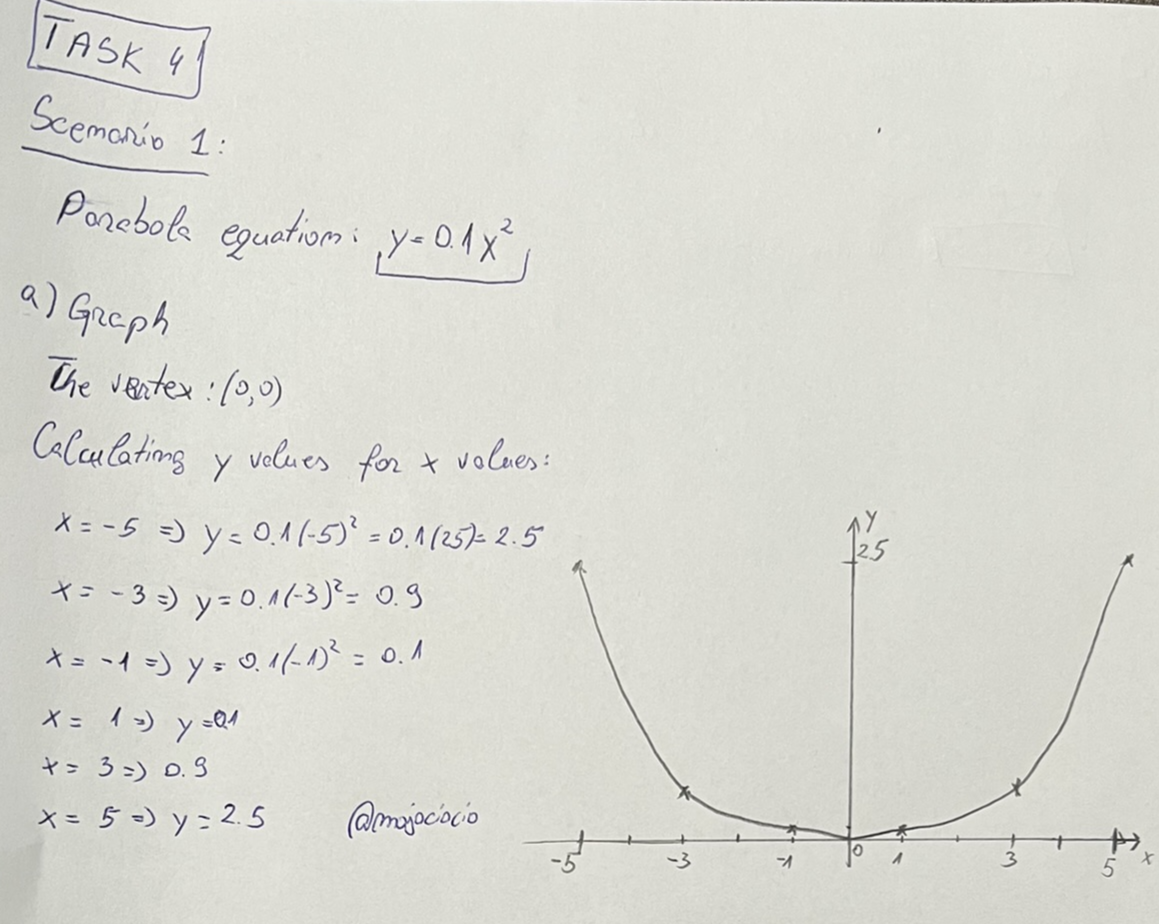 TASK 4
Scenario 1:
Parabola equation: y=0.1x²
a) Graph
The vertex: (0,0)
Calculating y values for x values:
x = -5 => y = 0.1(-5)² = 0.1(25)= 2.5
x = -3 => y = 0.1(-3)² = 0.9
x = -1 => y = 0.1(-1)² = 0.1
x = 1 => y = 0.1
x = 3 => 0.9
x = 5 => y = 2.5
@majociocio
y
2.5
-5 -3 -1 0 1 3 5 x